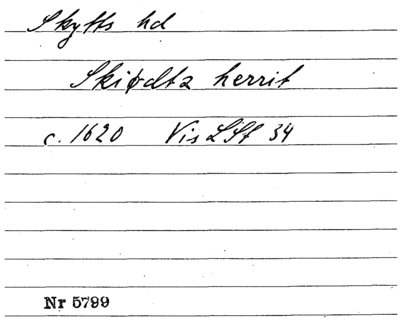 Skytts hd
Skiødtz herrit
c. 1620 Vis LSf 34
Nr 5799